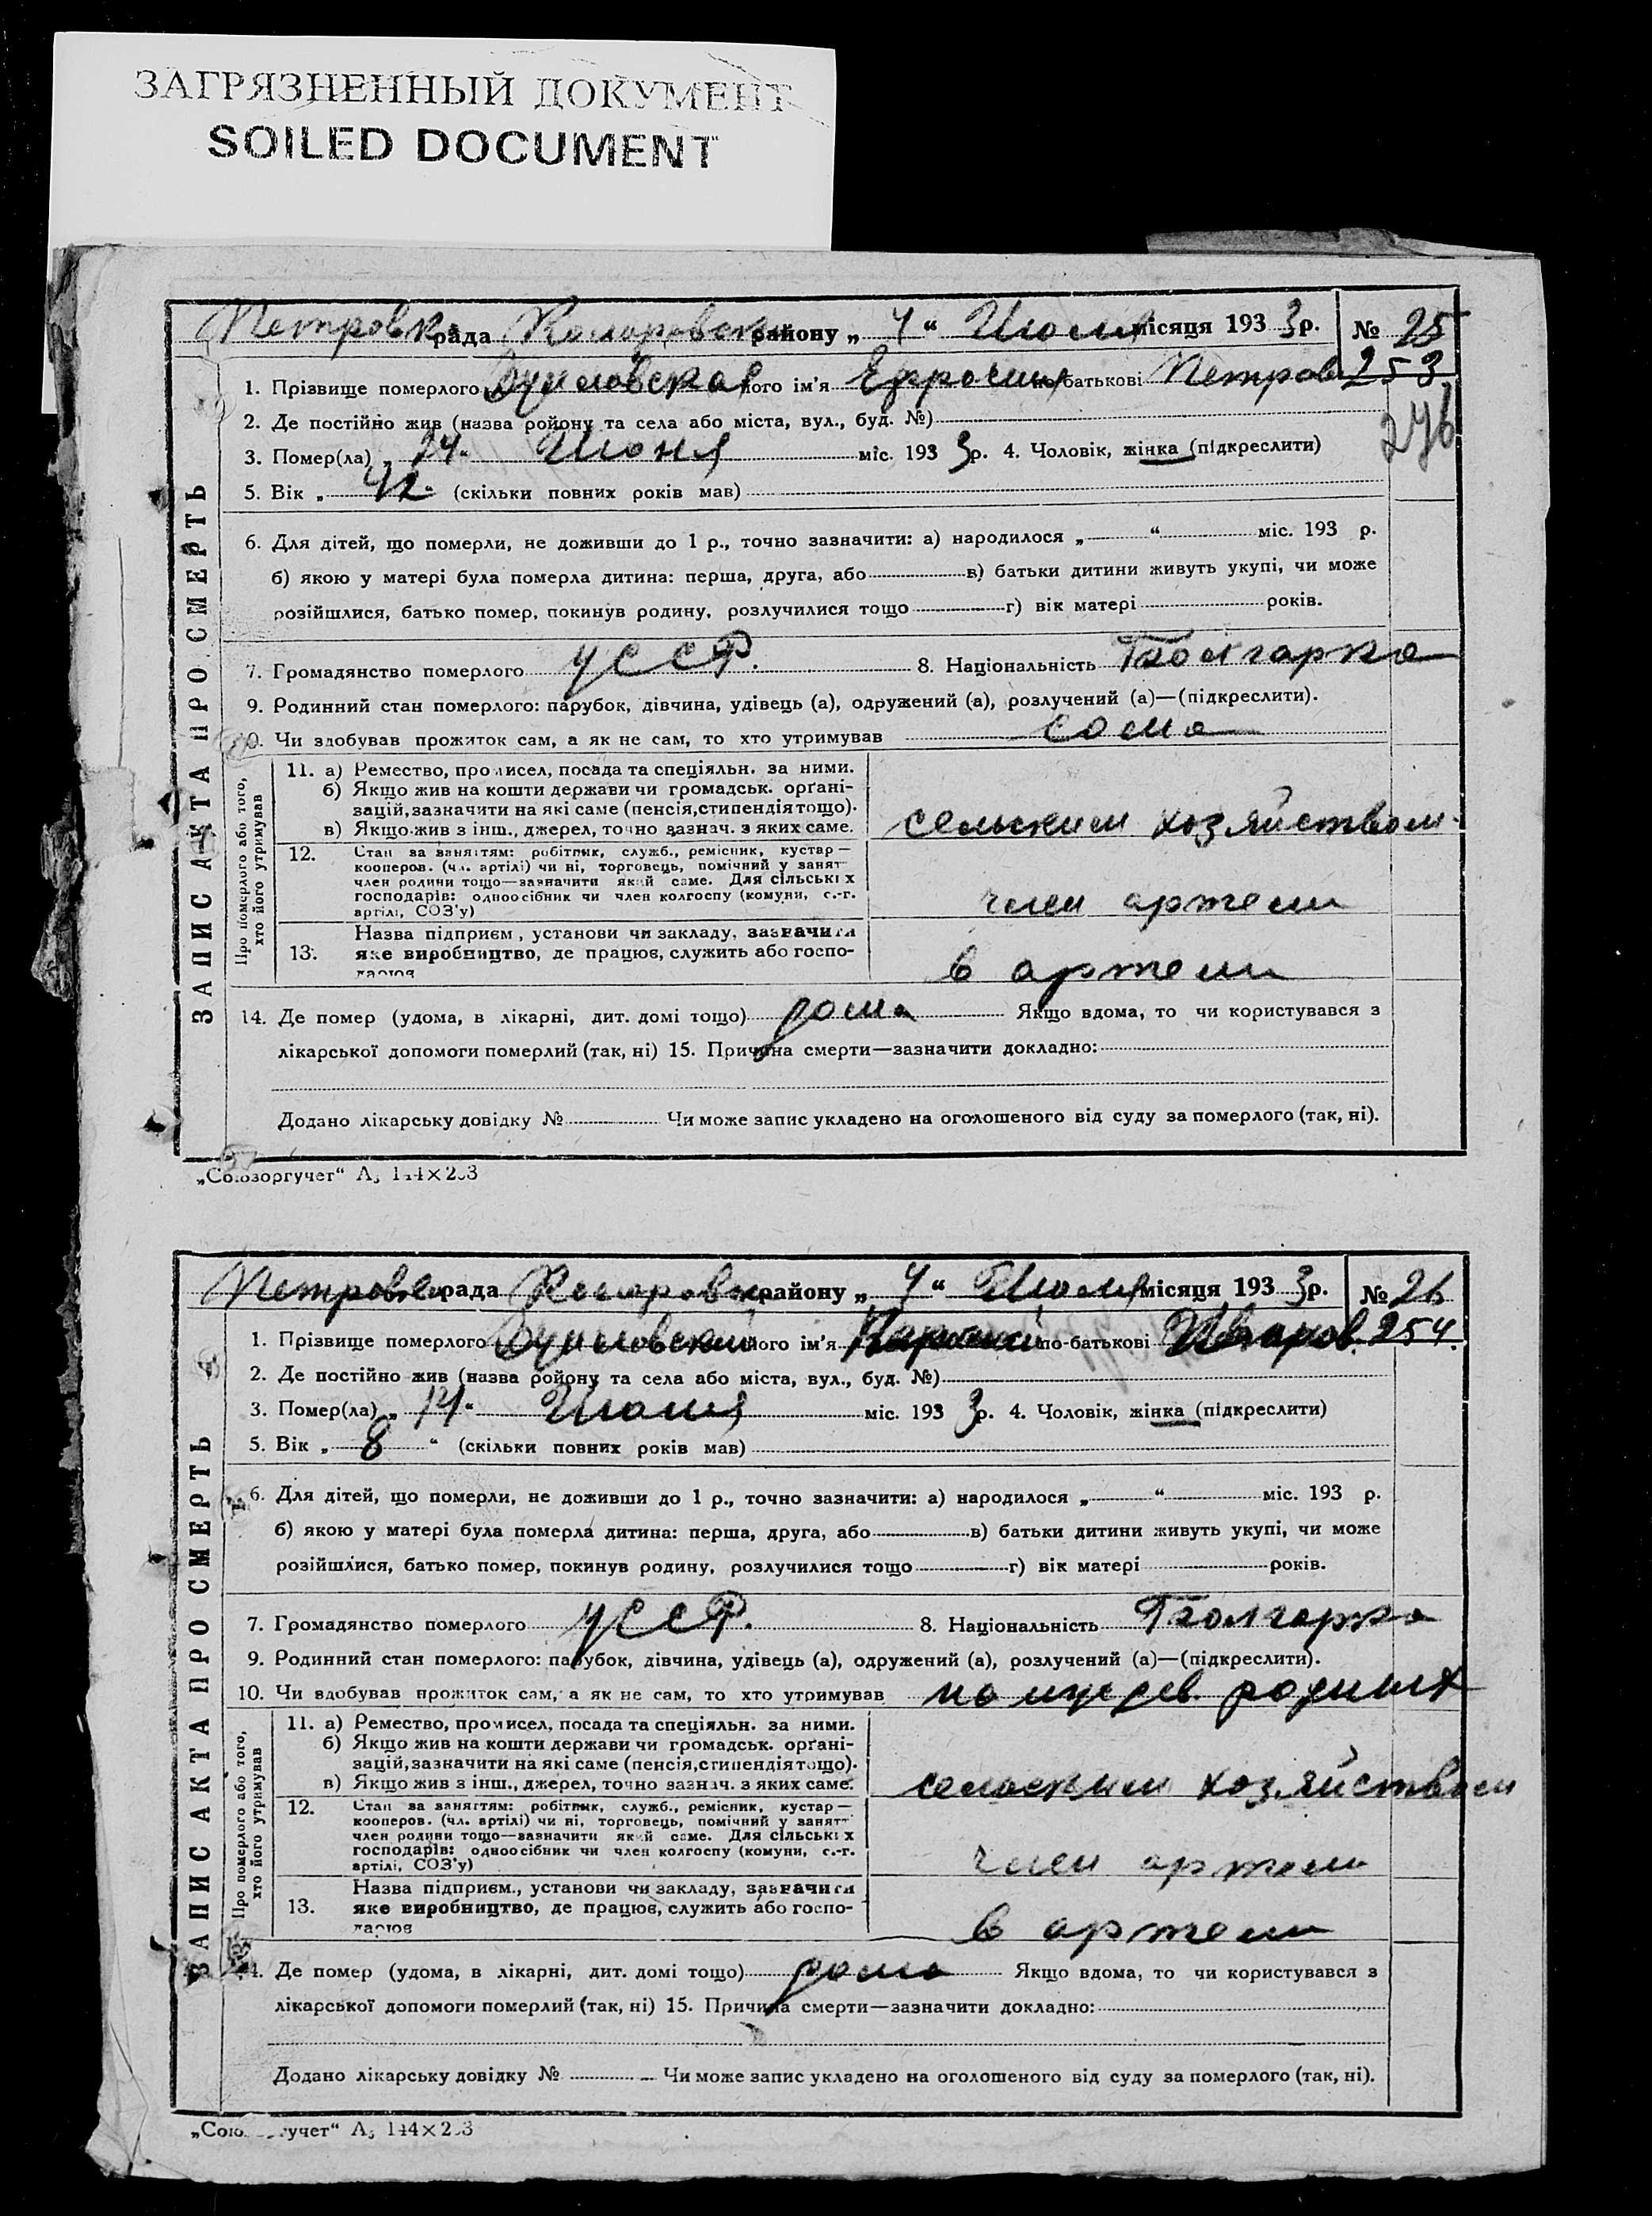 ЗАГРЯЗНЕННЫЙ ДОКУМЕНТ
SOILED DOCUMENT
Петровка рада района „ 4 “ Июля місяця 193 3 р. № 25
1. Прізвище померлого його ім'я Ефросиня по-батькові Петров 253
2. Де постійно жив (назва ройону та села або міста, вул., буд. №)
276
3. Помер(ла) „ 14 “ Июня міс. 193 3 р. 4. Чоловік, жінка (підкреслити)
5. Вік „ 42 “ (скільки повних років мав)
6. Для дітей, що померли, не доживши до 1 р., точно зазначити: а) народилося „ “ міс. 193 р.
б) якою у матері була померла дитина: перша, друга, або в) батьки дитини живуть укупі, чи може
розійшлися, батько помер, покинув родину, розлучилися тощо г) вік матері років.
7. Громадянство померлого УССР. 8. Національність Болгарка
9. Родинний стан померлого: парубок, дівчина, удівець (а), одружений (а), розлучений (а)—(підкреслити).
10. Чи здобував прожиток сам, а як не сам, то хто утримував сама
11. а) Ремество, промисел, посада та спеціяльн. за ними.
б) Якщо жив на кошти держави чи громадськ. орґані-
зацій, зазначити на які саме (пенсія, стипендія тощо).
в) Якщо жив з інш., джерел, точно зазнач. з яких саме. сельским хозяйством
12. Стан за заняттям: робітник, служб., ремісник, кустар—
кооперов. (чл. артілі) чи ні, торговець, помічний у занят-
член родини тощо—зазначити який саме. Для сільських
господарів: одноосібник чи член колгоспу (комуни, с.-г.
артілі, СОЗ'у) член артели
Назва підприєм., установи чи закладу, зазначити
13. яке виробництво, де працює, служить або госпо-
дарює в артели
14. Де помер (удома, в лікарні, дит. домі тощо) дома Якщо вдома, то чи користувався з
лікарської допомоги померлий (так, ні) 15. Причина смерти—зазначити докладно:
Додано лікарську довідку № Чи може запис укладено на оголошеного від суду за померлого (так, ні).
ЗАПИС АКТА ПРО СМЕРТЬ
Про померлого або того,
хто його утримував
„Союзоргучет“ А5 144×203
Петровка рада району „ 4 “ Июля місяця 193 3 р. № 26
1. Прізвище померлого його ім'я по-батькові Иванов. 254.
2. Де постійно жив (назва ройону та села або міста, вул., буд. №)
3. Помер(ла) „ 14 “ міс. 193 3 р. 4. Чоловік, жінка (підкреслити)
5. Вік „ 8 “ (скільки повних років мав)
6. Для дітей, що померли, не доживши до 1 р., точно зазначити: а) народилося „ “ міс. 193 р.
б) якою у матері була померла дитина: перша, друга, або в) батьки дитини живуть укупі, чи може
розійшлися, батько помер, покинув родину, розлучилися тощо г) вік матері років.
7. Громадянство померлого УССР. 8. Національність Болгарка
9. Родинний стан померлого: парубок, дівчина, удівець (а), одружений (а), розлучений (а)—(підкреслити).
10. Чи здобував прожиток сам, а як не сам, то хто утримував на ижdев. родных
11. а) Ремество, промисел, посада та спеціяльн. за ними.
б) Якщо жив на кошти держави чи громадськ. орґані-
зацій, зазначити на які саме (пенсія, стипендія тощо).
в) Якщо жив з інш., джерел, точно зазнач. з яких саме. сельским хозяйством
12. Стан за заняттям: робітник, служб., ремісник, кустар—
кооперов. (чл. артілі) чи ні, торговець, помічний у занят-
член родини тощо—зазначити який саме. Для сільських
господарів: одноосібник чи член колгоспу (комуни, с.-г.
артілі, СОЗ'у) член артели
Назва підприєм., установи чи закладу, зазначити
13. яке виробництво, де працює, служить або госпо-
дарює в артели
14. Де помер (удома, в лікарні, дит. домі тощо) дома Якщо вдома, то чи користувався з
лікарської допомоги померлий (так, ні) 15. Причина смерти—зазначити докладно:
Додано лікарську довідку № Чи може запис укладено на оголошеного від суду за померлого (так, ні).
ЗАПИС АКТА ПРО СМЕРТЬ
Про померлого або того,
хто його утримував
„Союзоргучет“ А5 144×203